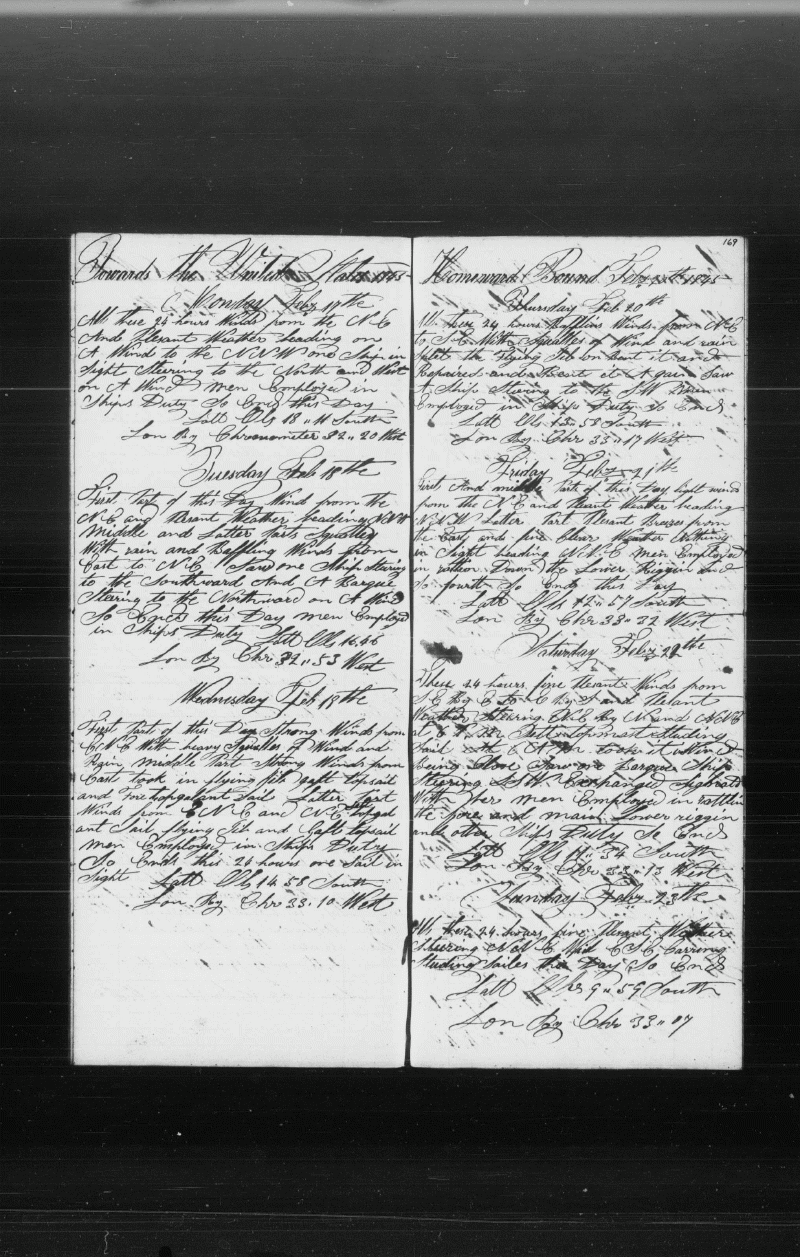 Towards the United States 1845
Monday Feby 17th
All these 24 hours Winds from the N E
And Plesant Weather heading on
A Wind to the N N W one Ship in
Sight Steering to the North and West
on A Wind men Employed in
Ships Duty So Ends this Day
Latt Obs 18 " 11 South
Lon By Chronometer 32 " 20 West
Tuesday Feb 18th
First Part of this Day Wind from the
N E and Plesant Weather heading N N W
Middle and Latter Parts Squalley
With rain and Baffling Winds from
East to N E Saw one Ship Steering
to the Southward And A Barque
Stering to the Northward on A Wind
So Ends this Day men Employed
in Ships Duty Latt Obs 16.46
Lon By Chr 32 " 53 West
Wednesday Feb 19th
First Part of this Day Strong Winds from
E N E With heavy Squalles of Wind and
Rain, middle Part Strong Winds from
East took in flying jib gaft topsail
and Foretopgalent Sail Latter Part
Winds from E N E and N E topgal
ant Sail flying Jib and Gaft topsail
men Employed in Ships Duty
So Ends this 24 hours one Sail in
Sight Latt Obs 14.58 South
Lon By Chr 33.10 West
169
Homeward Bound Feby 1845
Thursday Feb 20th
All these 24 hours Baffling Winds from N E
to S E With Squalles of Wind and rain
Split the flying Jib on bent it and
Repaired and it A gain Saw
A Ship Stering to the S W men
Employed in Ships Duty So Ends
Latt Obs 13 " 58 South
Lon By Chr 33 " 17 West
Friday Feby 21th
First And middle Part of this Day light winds
from the N E and Plesant Weather heading
N N W Latter Part Plesant Breezes from
the East and fine Clear Weather Nothing
in Sight heading N N E men Employed
in ratlen Down the Lower Riggin and
So fourth So Ends this Day
Latt Obs 12 " 57 South
Lon By Chr 33 " 32 West
Saturday Feby 22th
These 24 hours fine Plesant Winds from
S E By E to E By S and Plesant
Weather Steering N E By N and N N E
at Set out topmast Studing
Sail At took it in
Being Saw one Barque Ship
Steering S S W Exchanged Signals
With her men Employed in rattlin
the fore and main Lower riggin
and other Ships Duty So Ends
Latt Obs 11 " 34 South
Lon By Chr 33 " 13 West
Sunday Feby 23th
All these 24 hours fine Plesant Weather
Steering N N E Wind E S E Carring
Studing Sailes this Day So Ends
Latt Obs 9 " 59 South
Lon By Chr 33 " 07